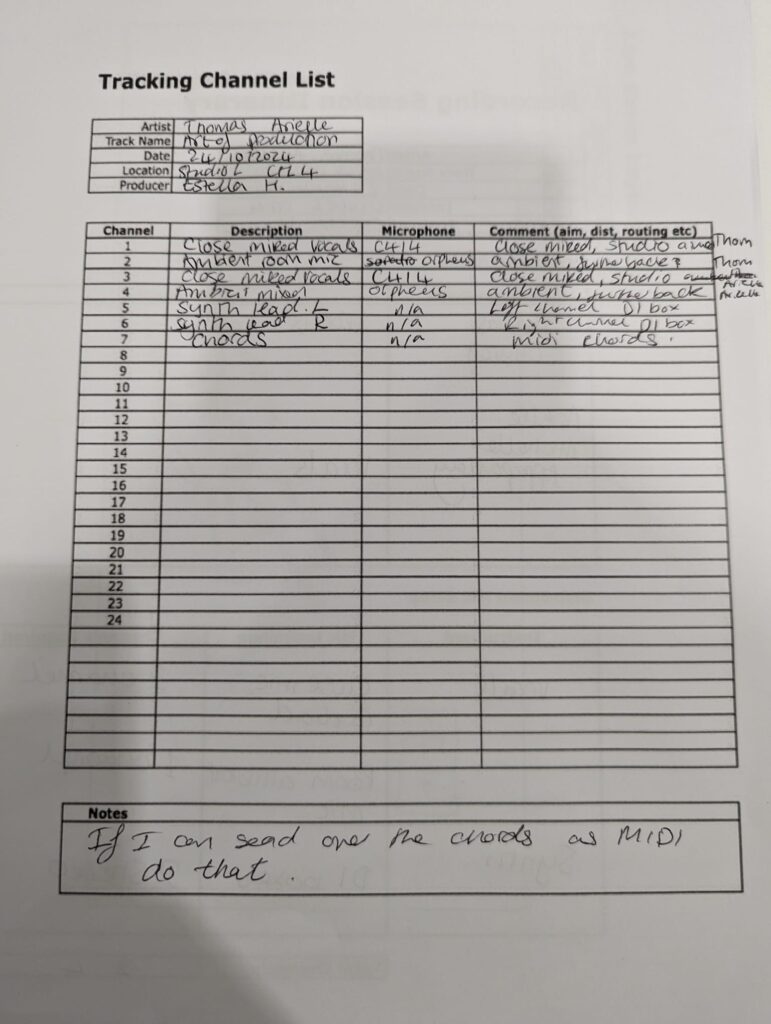 Tracking Channel List
Artist Thomas Arielle
Track Name Art of Production
Date 24/10/2024
Location Studio L
Producer Estella H.
Channel Description Microphone Comment (aim, dist, routing etc)
1 Close miked vocals C414 Close miked, studio Thom
2 Ambient room mic orpheus ambient, back Thom
3 Close miked vocals C414 Close miked, studio Arielle
4 Ambient miked orpheus ambient, back Arielle
5 Synth lead L n/a Left channel DI box
6 synth lead R n/a Right channel DI box
7 chords n/a midi chords.
8
9
10
11
12
13
14
15
16
17
18
19
20
21
22
23
24
Notes
If I can send over the chords as MIDI
do that.